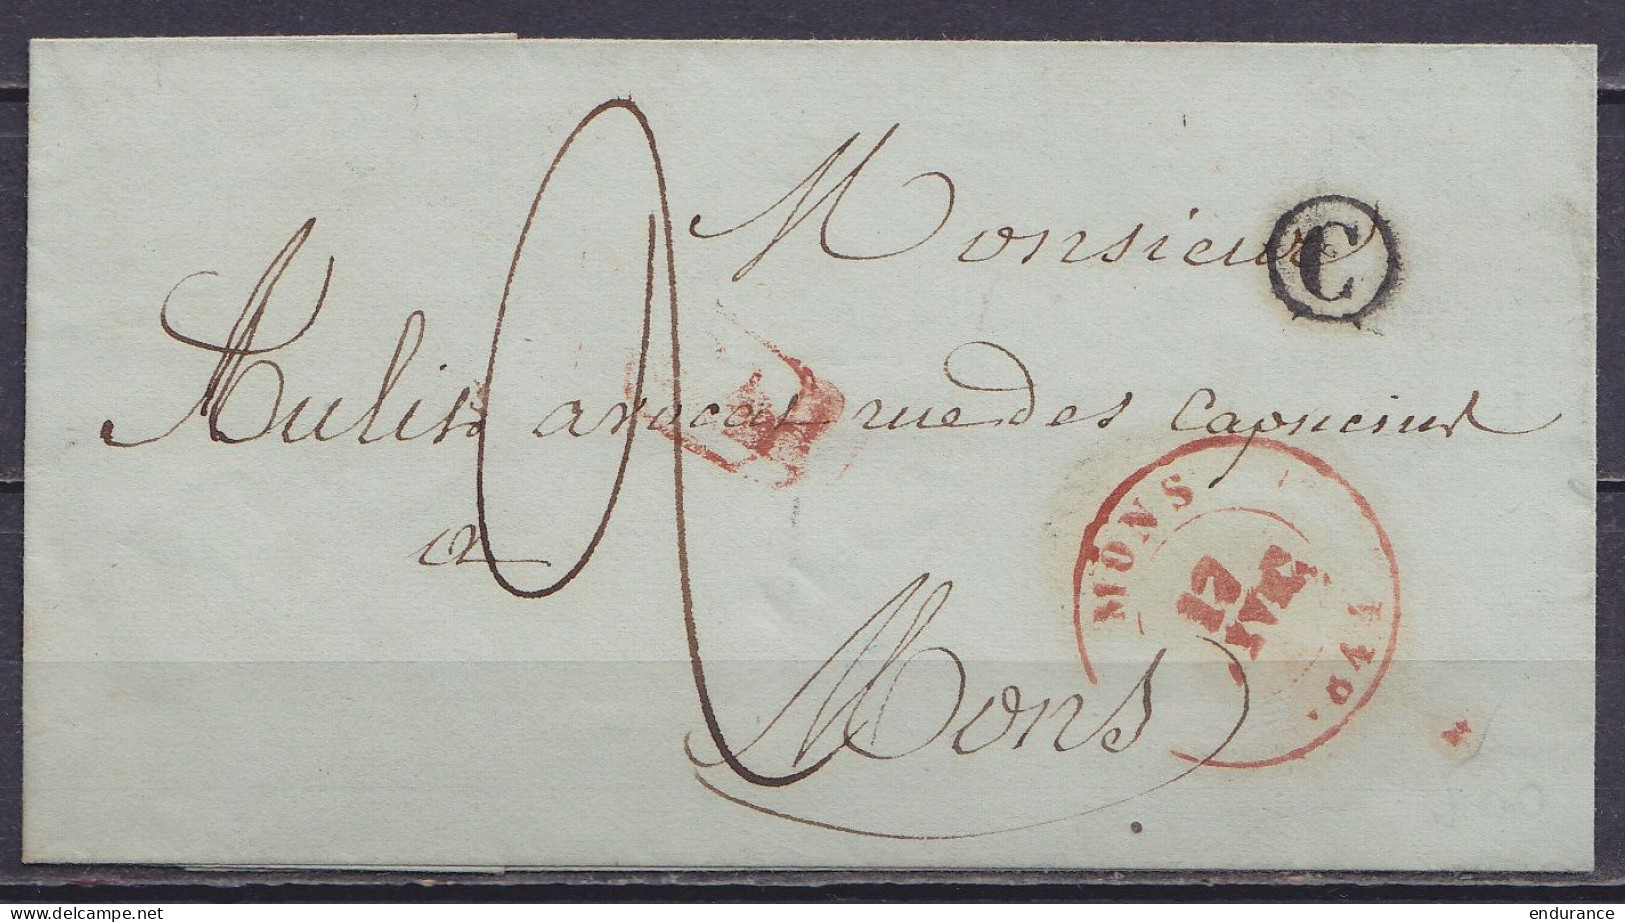 Monsieur
C
Aulis avocat rue des Capucins
a
Mons
MONS
17
184
2
© delcampe.net
endurance